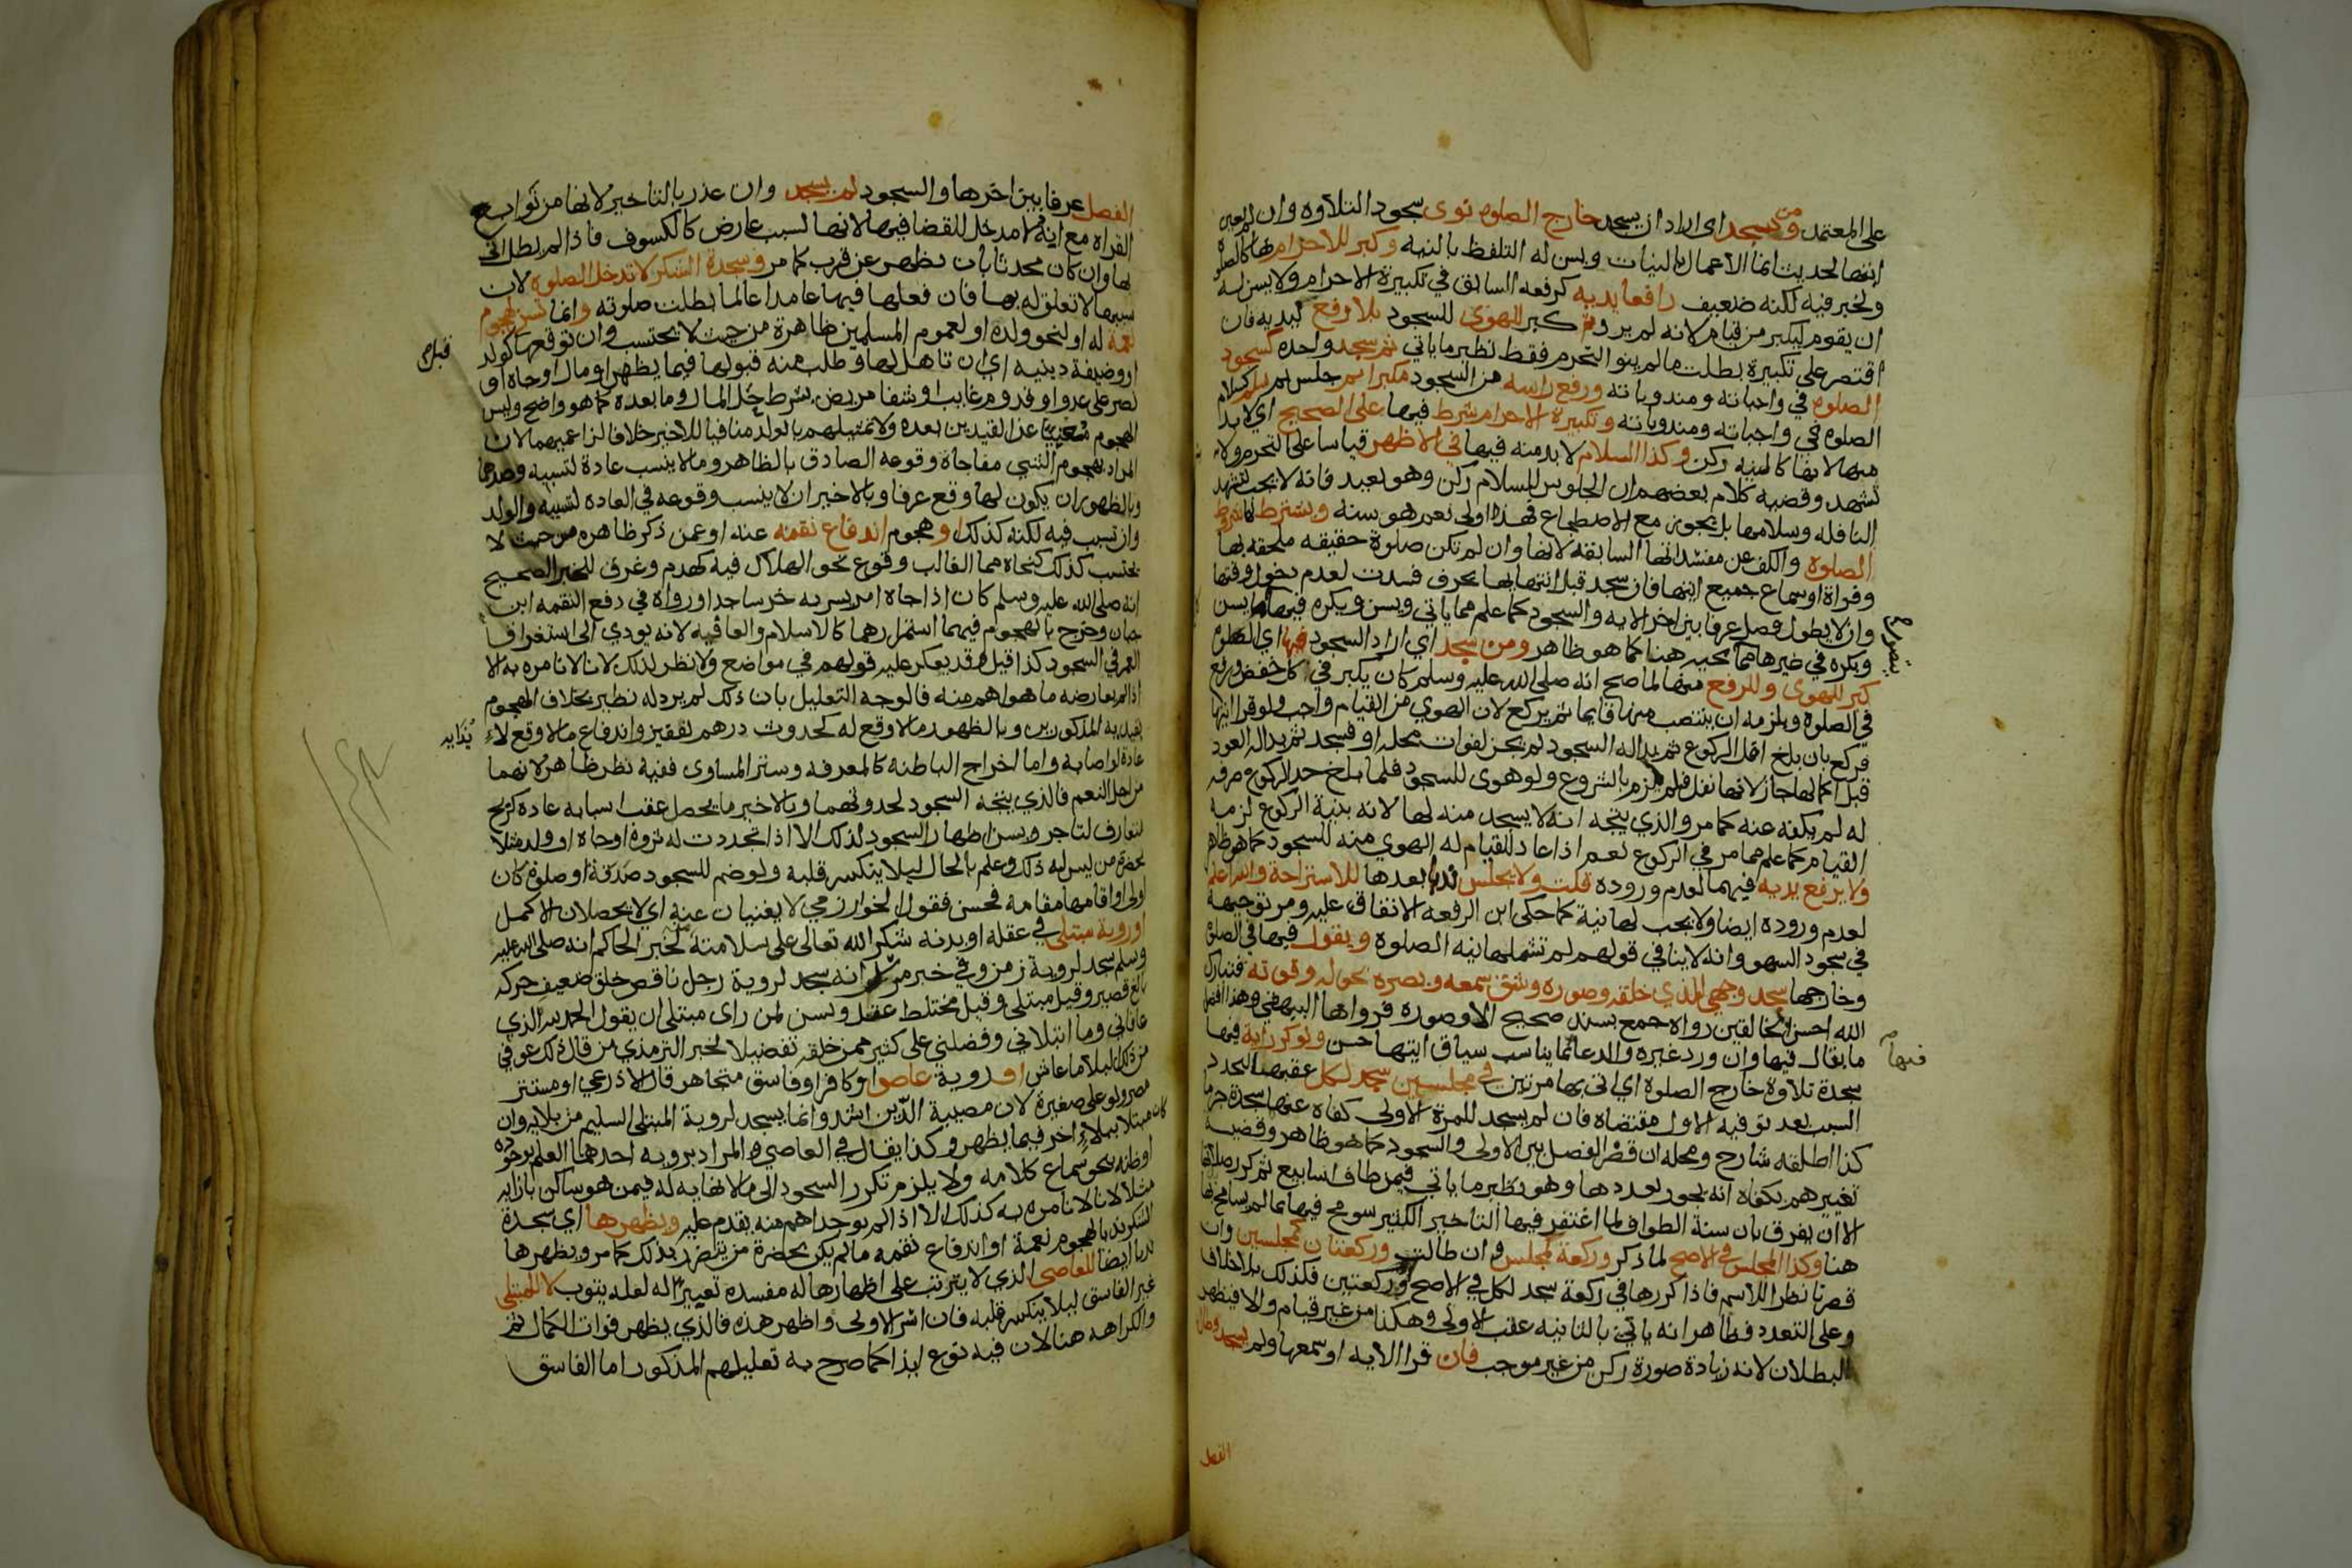 على المعتمد ومن سجد اي اراد ان يسجد خارج الصلوه نوى سجود التلاوه وان لم يعين
ايتها لحديث انما الاعمال بالنيات ويسن له التلفظ بالنيه وكبر للاحرام بها كالصلوة
ولخبر فيه لكنه ضعيف رافعا يديه كرفعه السابق في تكبيرة الاحرام ولا يسن له
ان يقوم ليكبر من قيام لانه لم يرد ثم كبر للهوى للسجود بلا رفع ليديه فان
اقتصر على تكبيرة بطلت ما لم ينو التحرم فقط نظير ما ياتي ثم سجد واحدة كسجود
الصلوه في واجباته ومندوباته ورفع راسه من السجود مكبرا ثم جلس ثم سلم كسلام
الصلوه في واجباته ومندوباته وتكبيرة الاحرام شرط فيها على الصحيح اي لا بد
منها لانها كالنيه ركن وكذا السلام لا بد منه فيها في الاظهر قياسا على التحرم ولا
تشهد وقضية كلام بعضهم ان الجلوس للسلام ركن وهو بعيد فانه لا يجب لتشهد
النافله وسلامها بل يجوز مع الاضطجاع فهذه اولى نعم هو سنه ويشترط لها شروط
الصلوه والكف عن مفسداتها السابقه لانها وان لم تكن صلوة حقيقه ملحقه بها
وقراة او سماع جميع ايتها فان سجد قبل انتهايها بحرف فسدت لعدم دخول وقتها
وان لا يطول فصل عرفا بين اخر الايه والسجود كما علم مما ياتي ويسن ويكره فيها ما يسن
ويكره في غيرها مما يجيء هنا كما هو ظاهر ومن سجد اي اراد السجود فيها اي الصلوه
كبر للهوى وللرفع منها لما صح انه صلى الله عليه وسلم كان يكبر في كل خفض ورفع
في الصلوة ويلزمه ان ينتصب منها قايما ثم يركع لان الهوي من القيام واجب ولو قرا ايتها
فركع بان بلغ اقل الركوع ثم بدا له السجود لم يجز لفوات محله او فسجد ثم بدا له العود
قبل اكمالها جاز لانها نفل فلم يلزم بالشروع ولو هوى للسجود فلما بلغ حد الركوع صرفه
له لم يكفه عنه كما مر والذي يتجه انه لا يسجد منه لها لانه بنية الركوع لزمه
القيام كما علم مما مر في الركوع نعم اذا عاد للقيام له الهوي منه للسجود كما هو ظاهر
ولا يرفع يديه فيهما لعدم وروده قلت ولا يجلس ندبا بعدها للاستراحة والله اعلم
لعدم وروده ايضا ولا يجب لها نية كما حكى ابن الرفعه الاتفاق عليه ومر توجيهه
في سجود السهو وانه لا ينافي قولهم لم تشملها نيه الصلوة ويقول فيها في الصلوه
وخارجها سجد وجهي للذي خلقه وصوره وشق سمعه وبصره بحوله وقوته فتبارك
الله احسن الخالقين رواه جمع بسند صحيح الا وصوره فرواها البيهقي وهذا افضل
ما يقال فيها وان ورد غيره والدعا بما يناسب سياق ايتها حسن ولو كرر اية فيها
سجدة تلاوة خارج الصلوة اي اتى بها مرتين في مجلسين سجد لكل عقبها لتجدد
السبب بعد توفيه الاول مقتضاه فان لم يسجد للمرة الاولى كفاه عنها سجدة جزما
كذا اطلقه شارح ومحله ان قصر الفصل بين الاولى والسجود كما هو ظاهر وقضيه
تعبيرهم بكفاه انه يجوز تعددها وهو نظير ما ياتي فيمن طاف اسابيع ثم كرر صلاتها
الا ان يفرق بان سنة الطواف لما اغتفر فيها التاخير الكثير سومح فيها بما لم يسامح به
هنا وكذا المجلس في الاصح لما ذكر وركعة كمجلس وان طالت وركعتان كمجلسين وان
قصرتا نظرا للاسم فاذا كررها في ركعة سجد لكل في الاصح او ركعتين فكذلك بلا خلاف
وعلى التعدد فظاهر انه ياتي بالثانيه عقب الاولى وهكذا من غير قيام والا فيظهر
البطلان لانه زيادة صورة ركن من غير موجب فان قرا الايه او سمعها ولم يسجد وطال
ينصرم
فيها
الفصل
الفصل عرفا بين اخرها والسجود لم يسجد وان عذر بالتاخير لانها من توابع
القراه مع انه لا مدخل للقضا فيها لانها لسبب عارض كالكسوف فاذا لم يطل اتى
بها وان كان محدثا بان تطهر عن قرب كما مر وسجدة الشكر لا تدخل الصلوه لان
سببها لا تعلق له بها فان فعلها فيها عامدا عالما بطلت صلوته وانما تسن لهجوم
نعمة له او لنحو ولده او لعموم المسلمين ظاهرة من حيث لا يحتسب وان توقعها كولد
او وظيفة دينيه اي ان تاهل لها وطلب منه قبولها فيما يظهر او مال او جاه او
نصر على عدو او قدوم غايب او شفا مريض بشرط حل المال وما بعده كما هو واضح وليس
الهجوم مغنيا عن القيدين بعده ولا تمثيلهم بالولد منافيا للاخير خلافا لزاعميهما لان
المراد بهجوم الشي مفاجاة وقوعه الصادق بالظاهر وما لا ينسب عادة لتسببه وضدهما
وبالظهور ان يكون لها وقع عرفا وبالاخير ان لا ينسب وقوعه في العاده لتسببه والولد
وان تسبب فيه لكنه كذلك او هجوم اندفاع نقمه عنه او عمن ذكر ظاهره من حيث لا
يحتسب كذلك كنجاه مما الغالب وقوع نحو الهلاك فيه كهدم وغرق للخبر الصحيح
انه صلى الله عليه وسلم كان اذا جاه امر يسر به خر ساجدا ورواه في دفع النقمه ابن
حبان وخرج بالهجوم فيهما استمرارهما كالاسلام والعافيه لانه يودي الى استغراق
العمر في السجود كذا قيل وقد يعكر عليه قولهم في مواضع ولا نظر لذلك لانا لا نامره به الا
اذا لم يعارضه ما هو اهم منه فالوجه التعليل بان ذلك لم يرد له نظير بخلاف الهجوم
بقيديه المذكورين وبالظهور ما لا وقع له كحدوث درهم لفقير واندفاع ما لا وقع لا
عادة لو اصابه واما اخراج الباطنه كالمعرفه وستر المساوى ففيه نظر ظاهر لانهما
من اجل النعم فالذي يتجه السجود لحدوثهما وبالاخير ما يحصل عقب اسبابه عادة كربح
متعارف لتاجر ويسن اظهار السجود لذلك الا اذا تجددت له ثروة او جاه او ولد مثلا
بحضرة من ليس له ذلك وعلم بالحال ليلا ينكسر قلبه ولو ضم للسجود صدقة او صلوة كان
اولى او اقامها مقامه فحسن فقول الخوارزمي لا يغنيان عنه اي لا يحصلان الاكمل
او روية مبتلى في عقله او بدنه شكرا لله تعالى على سلامته منه لخبر الحاكم انه صلى الله عليه
وسلم سجد لروية زمن وفي خبر مرسل انه سجد لروية رجل ناقص خلق ضعيف حركه
بالغ قصير وقيل مبتلى وقيل مختلط عقل ويسن لمن راى مبتلى ان يقول الحمد لله الذي
عافاني وما ابتلاني وفضلني على كثير ممن خلقه تفضيلا لخبر الترمذي من قال ذلك عوفي
من ذلك البلا ما عاش او روية عاص او كافر او فاسق متجاهر قال الاذرعي او مستتر
مصر ولو على صغيرة لان مصيبة الدين اشد وانما يسجد لروية المبتلى السليم من بلايه وان
كان مبتلا ببلاء اخر فيما يظهر وكذا يقال في العاصي والمراد برويه احدهما العلم بوجوده
او ظنه بنحو سماع كلامه ولا يلزم تكرر السجود الى ما لا نهايه له فيمن هو ساكن بازايه
مثلا لانا لا نامره به كذلك الا اذا لم يوجد اهم منه يقدم عليه ويظهرها اي سجدة
الشكر ندبا لهجوم نعمة او اندفاع نقمه ما لم يكن بحضرة من يتضرر بذلك كما مر ويظهرها
ندبا ايضا للعاصي الذي لا يترتب على اظهارها له مفسدة تعييرا له لعله يتوب لا للمبتلى
غير الفاسق ليلا ينكسر قلبه فان اسر الاولى واظهر هذه فالذي يظهر فوات الكمال ثم
والكراهه هنا لان فيه نوع ايذا كما صرح به تعليلهم المذكور اما الفاسق
قبلهم